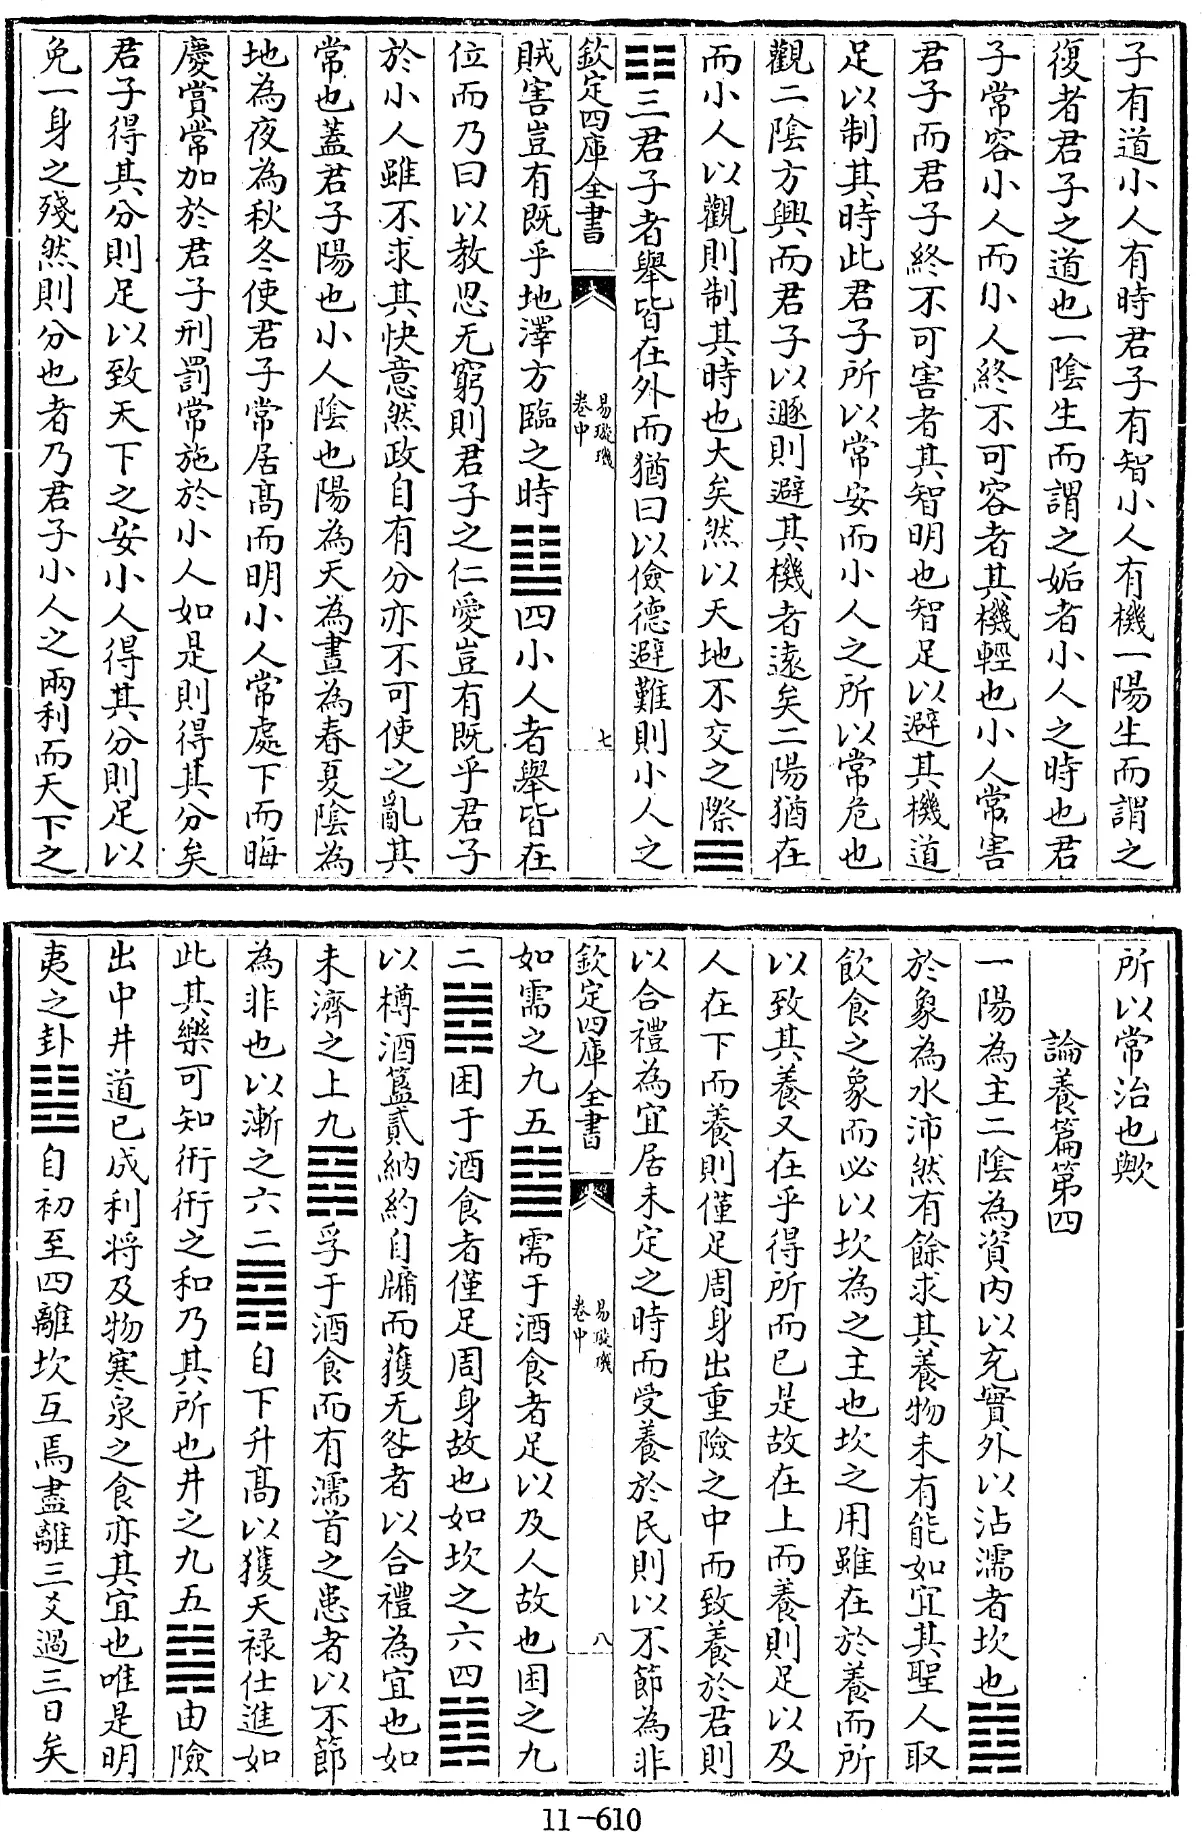 子有道小人有時君子有智小人有機一陽生而謂之
復者君子之道也一陰生而謂之姤者小人之時也君
子常容小人而小人終不可容者其機輕也小人常害
君子而君子終不可害者其智明也智足以避其機道
足以制其時此君子所以常安而小人之所以常危也
觀二陰方興而君子以遯則避其機者遠矣二陽猶在
而小人以觀則制其時也大矣然以天地不交之際☰
☷三君子者舉皆在外而猶曰以儉德避難則小人之
欽定四庫全書
易璇璣
卷中
七
賊害豈有既乎地澤方臨之時䷒四小人者舉皆在
位而乃曰以教思无窮則君子之仁愛豈有既乎君子
於小人雖不求其快意然政自有分亦不可使之亂其
常也蓋君子陽也小人陰也陽為天為晝為春夏陰為
地為夜為秋冬使君子常居髙而明小人常處下而晦
慶賞常加於君子刑罰常施於小人如是則得其分矣
君子得其分則足以致天下之安小人得其分則足以
免一身之殘然則分也者乃君子小人之兩利而天下之
所以常治也歟
論養篇第四
一陽為主二陰為資内以充實外以沾濡者坎也䷜
於象為水沛然有餘求其養物未有能如宜其聖人取
飲食之象而必以坎為之主也坎之用雖在於養而所
以致其養又在乎得所而已是故在上而養則足以及
人在下而養則僅足周身出重險之中而致養於君則
以合禮為宜居未定之時而受養於民則以不節為非
欽定四庫全書
易璇璣
卷中
八
如需之九五䷄需于酒食者足以及人故也困之九
二䷮困于酒食者僅足周身故也如坎之六四䷜
以樽酒簋貳納約自牖而獲无咎者以合禮為宜也如
未濟之上九䷿孚于酒食而有濡首之患者以不節
為非也以漸之六二䷴自下升髙以獲天禄仕進如
此其樂可知衎衎之和乃其所也井之九五䷯由險
出中井道已成利將及物寒泉之食亦其宜也唯是明
夷之卦䷣自初至四離坎互焉盡離三爻過三日矣
11-610